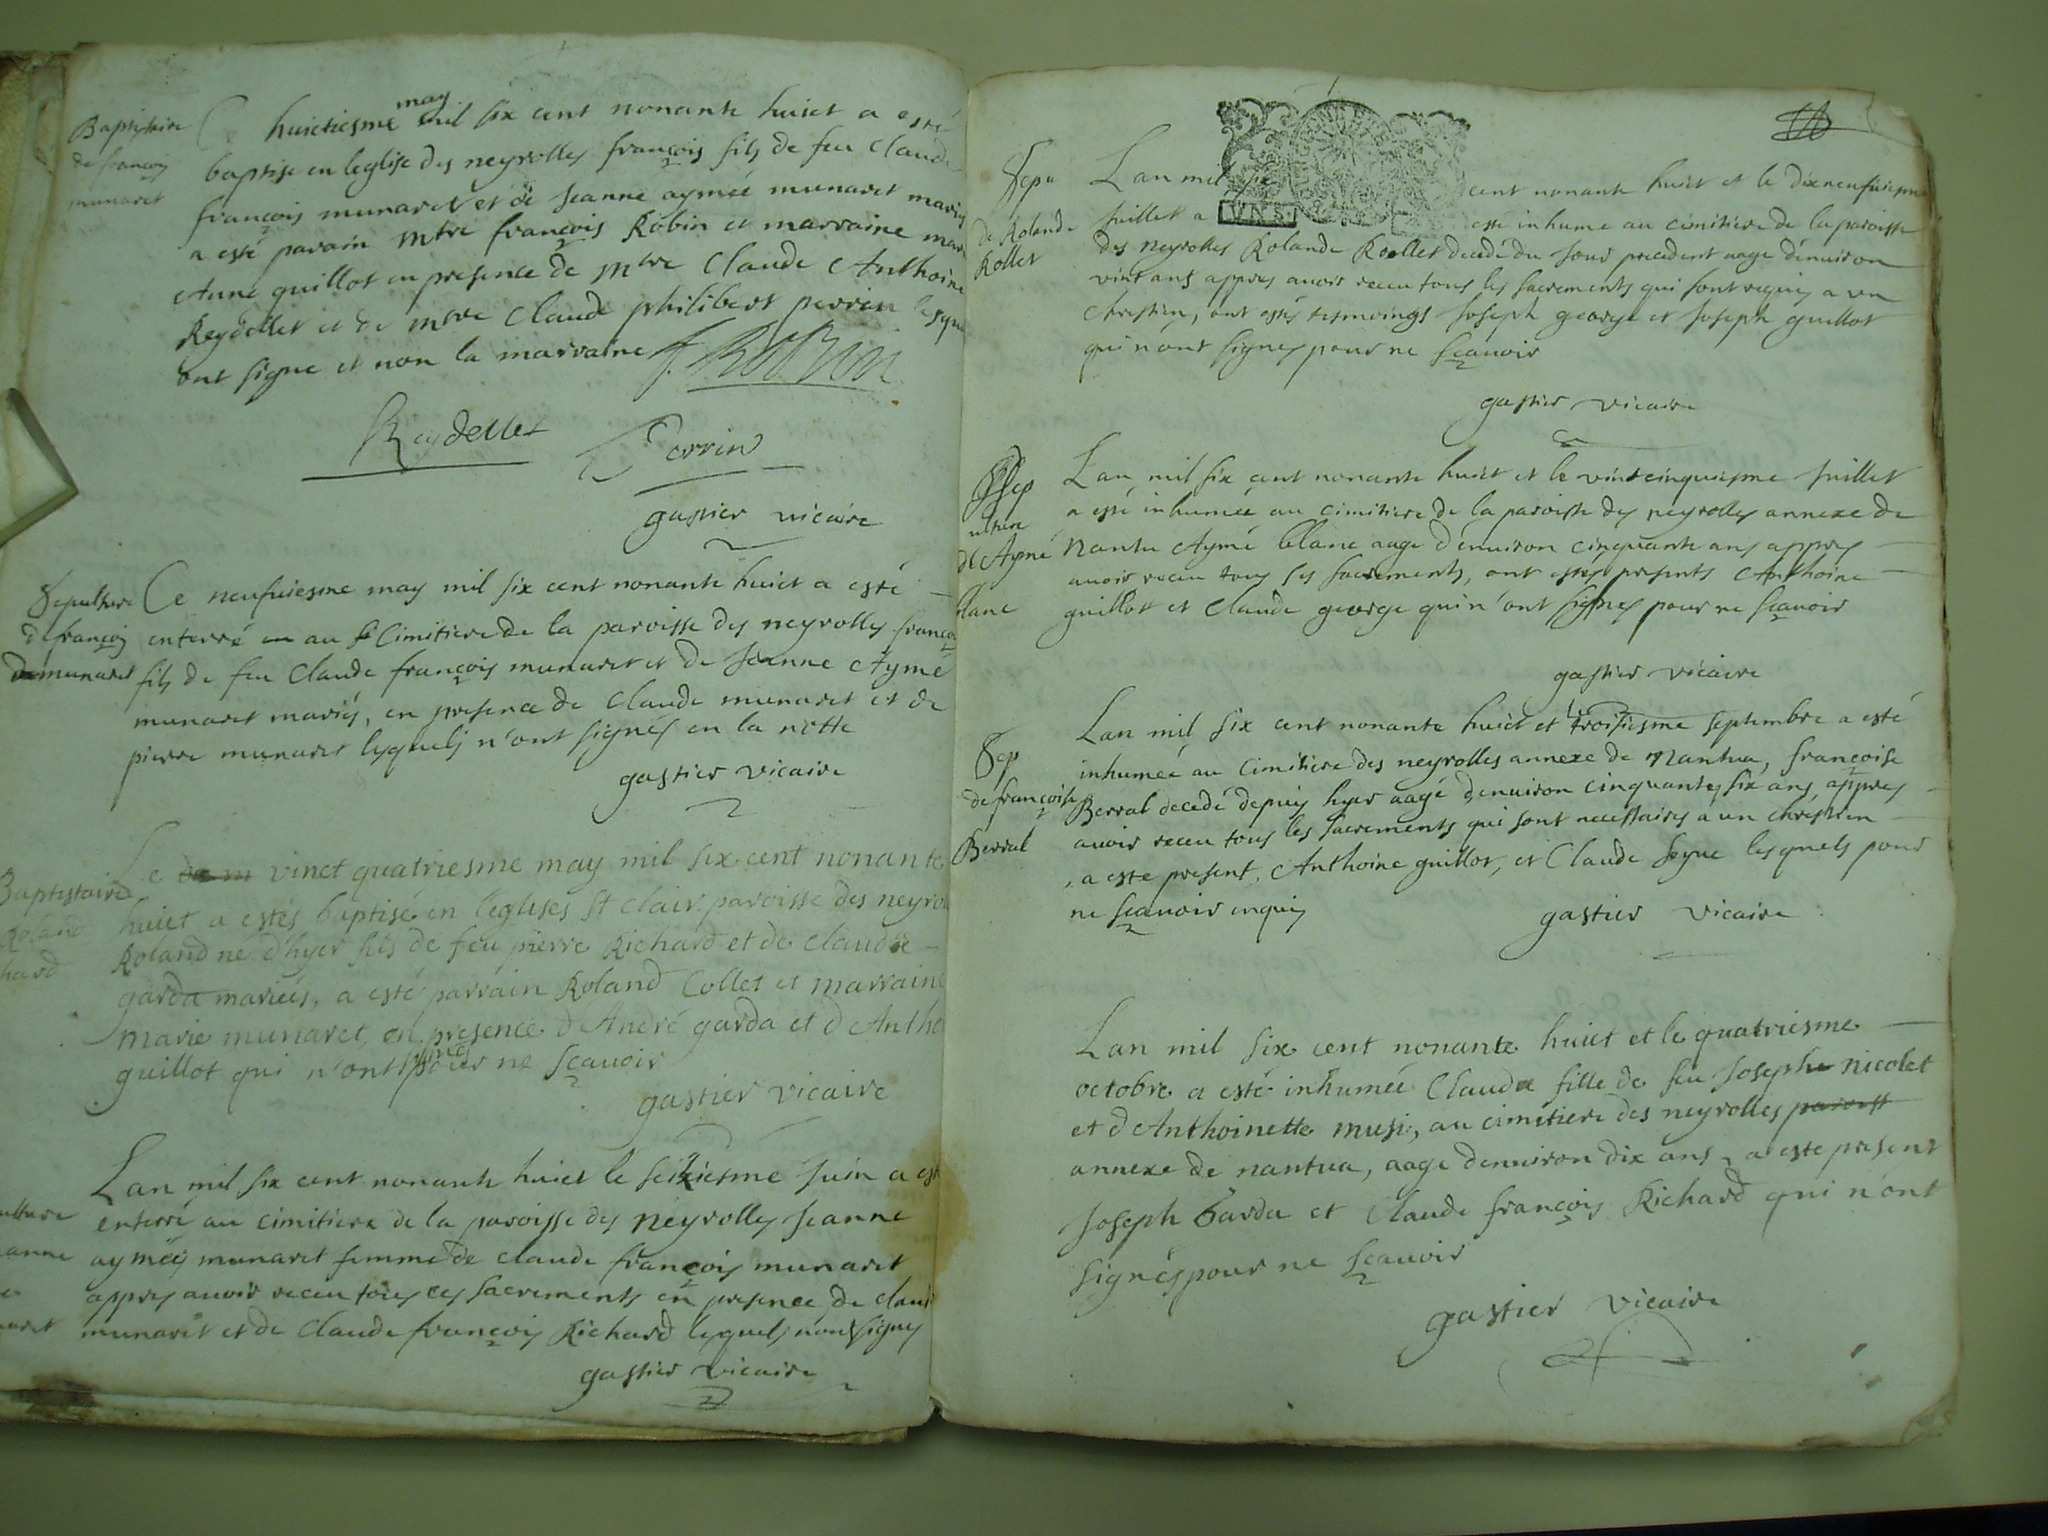 Baptistaire
de françois
munaret
Ce huictiesme may mil six cent nonante huict a esté
baptise en leglise des neyrolles françois fils de feu Claude
françois munaret et de Jeanne aymeé munaret mariés
a esté parain mtre françois Robin et marraine
Anne guillot en presence de mtre Claude Anthoine
Reydellet et de mtre Claude philibert perrin
ont signe et non la marraine f. Robin
Reydellet Perrin
gastier vicaire
Sepulture
de françois
munaret
Ce neufuiesme may mil six cent nonante huict a esté
enterré au Cimitiere de la paroisse des neyrolles françois
fils de feu Claude françois munaret et de Jeanne Aymé
munaret mariés, en presence de Claude munaret et de
pierre munaret lesquels n'ont signés en la notte
gastier vicaire
Baptistaire
Roland
hard
Le vinct quatriesme may mil six cent nonante
huict a estés baptisé en leglises St Clair paroisse des neyrol
Roland né d'hyer fils de feu pierre Richard et de Claudie
garda mariées, a esté parrain Roland Collet et marraine
marie munaret, en presence d'André garda et d'Antho
guillot qui n'ont signes pour ne sçauoir
gastier vicaire
ulture
anne
aret
Lan mil six cent nonante huict le seiziesme Juin a est
enterré au cimitiere de la paroisse des neyrolles Jeanne
aymeé munaret femme de claude françois munaret
appres auoir receu tous ces sacrements en presence de claud
munaret et de Claude françois Richard lesquels nont signes
gastier vicaire
Sepu
de Rolande
Rollet
Lan mil six cent nonante huict et le dixneufuiesme
Juillet a esté inhume au cimitiere de la paroisse
VNS
des neyrolles Rolande Rollet decedé du Jour precedent aage d'enuiron
vint ans appres auoir receu tous les sacrements qui sont requis a un
chrestien, ont estés tesmoings Joseph george et Joseph guillot
qui n'ont signes pour ne sçauoir
gastier vicaire
Sep
ulture
de Aymé
blanc
Lan mil six cent nonante huict et le vint cinquiesme Juillet
a esté inhumeé au cimitiere de la paroisse des neyrolles annexe de
Nantua Aymé blanc aage d'enuiron cinquante ans appres
auoir receu tous ses sacrements, ont estés presents Anthoine
guillot et Claude george qui n'ont signes pour ne sçauoir
gastier vicaire
Sep
de françoise
Berral
Lan mil six cent nonante huict et le troisiesme septembre a esté
inhumeé au cimitiere des neyrolles annexe de Nantua, françoise
Berral decedé depuis hyer aagé d'enuiron cinquante six ans, appres
auoir receu tous les sacrements qui sont necessaires a un chrestien
a esté present, Anthoine guillot, et Claude seyue lesquels pour
ne sçauoir enquis
gastier vicaire
Lan mil six cent nonante huict et le quatriesme
octobre a esté inhumeé Clauda fille de feu Joseph nicolet
et d'Anthoinette musi, au cimitiere des neyrolles paroisse
annexe de nantua, aage d'enuiron dix ans, a este present
Joseph Garda et Claude françois Richard qui n'ont
signés pour ne sçauoir
gastier vicaire